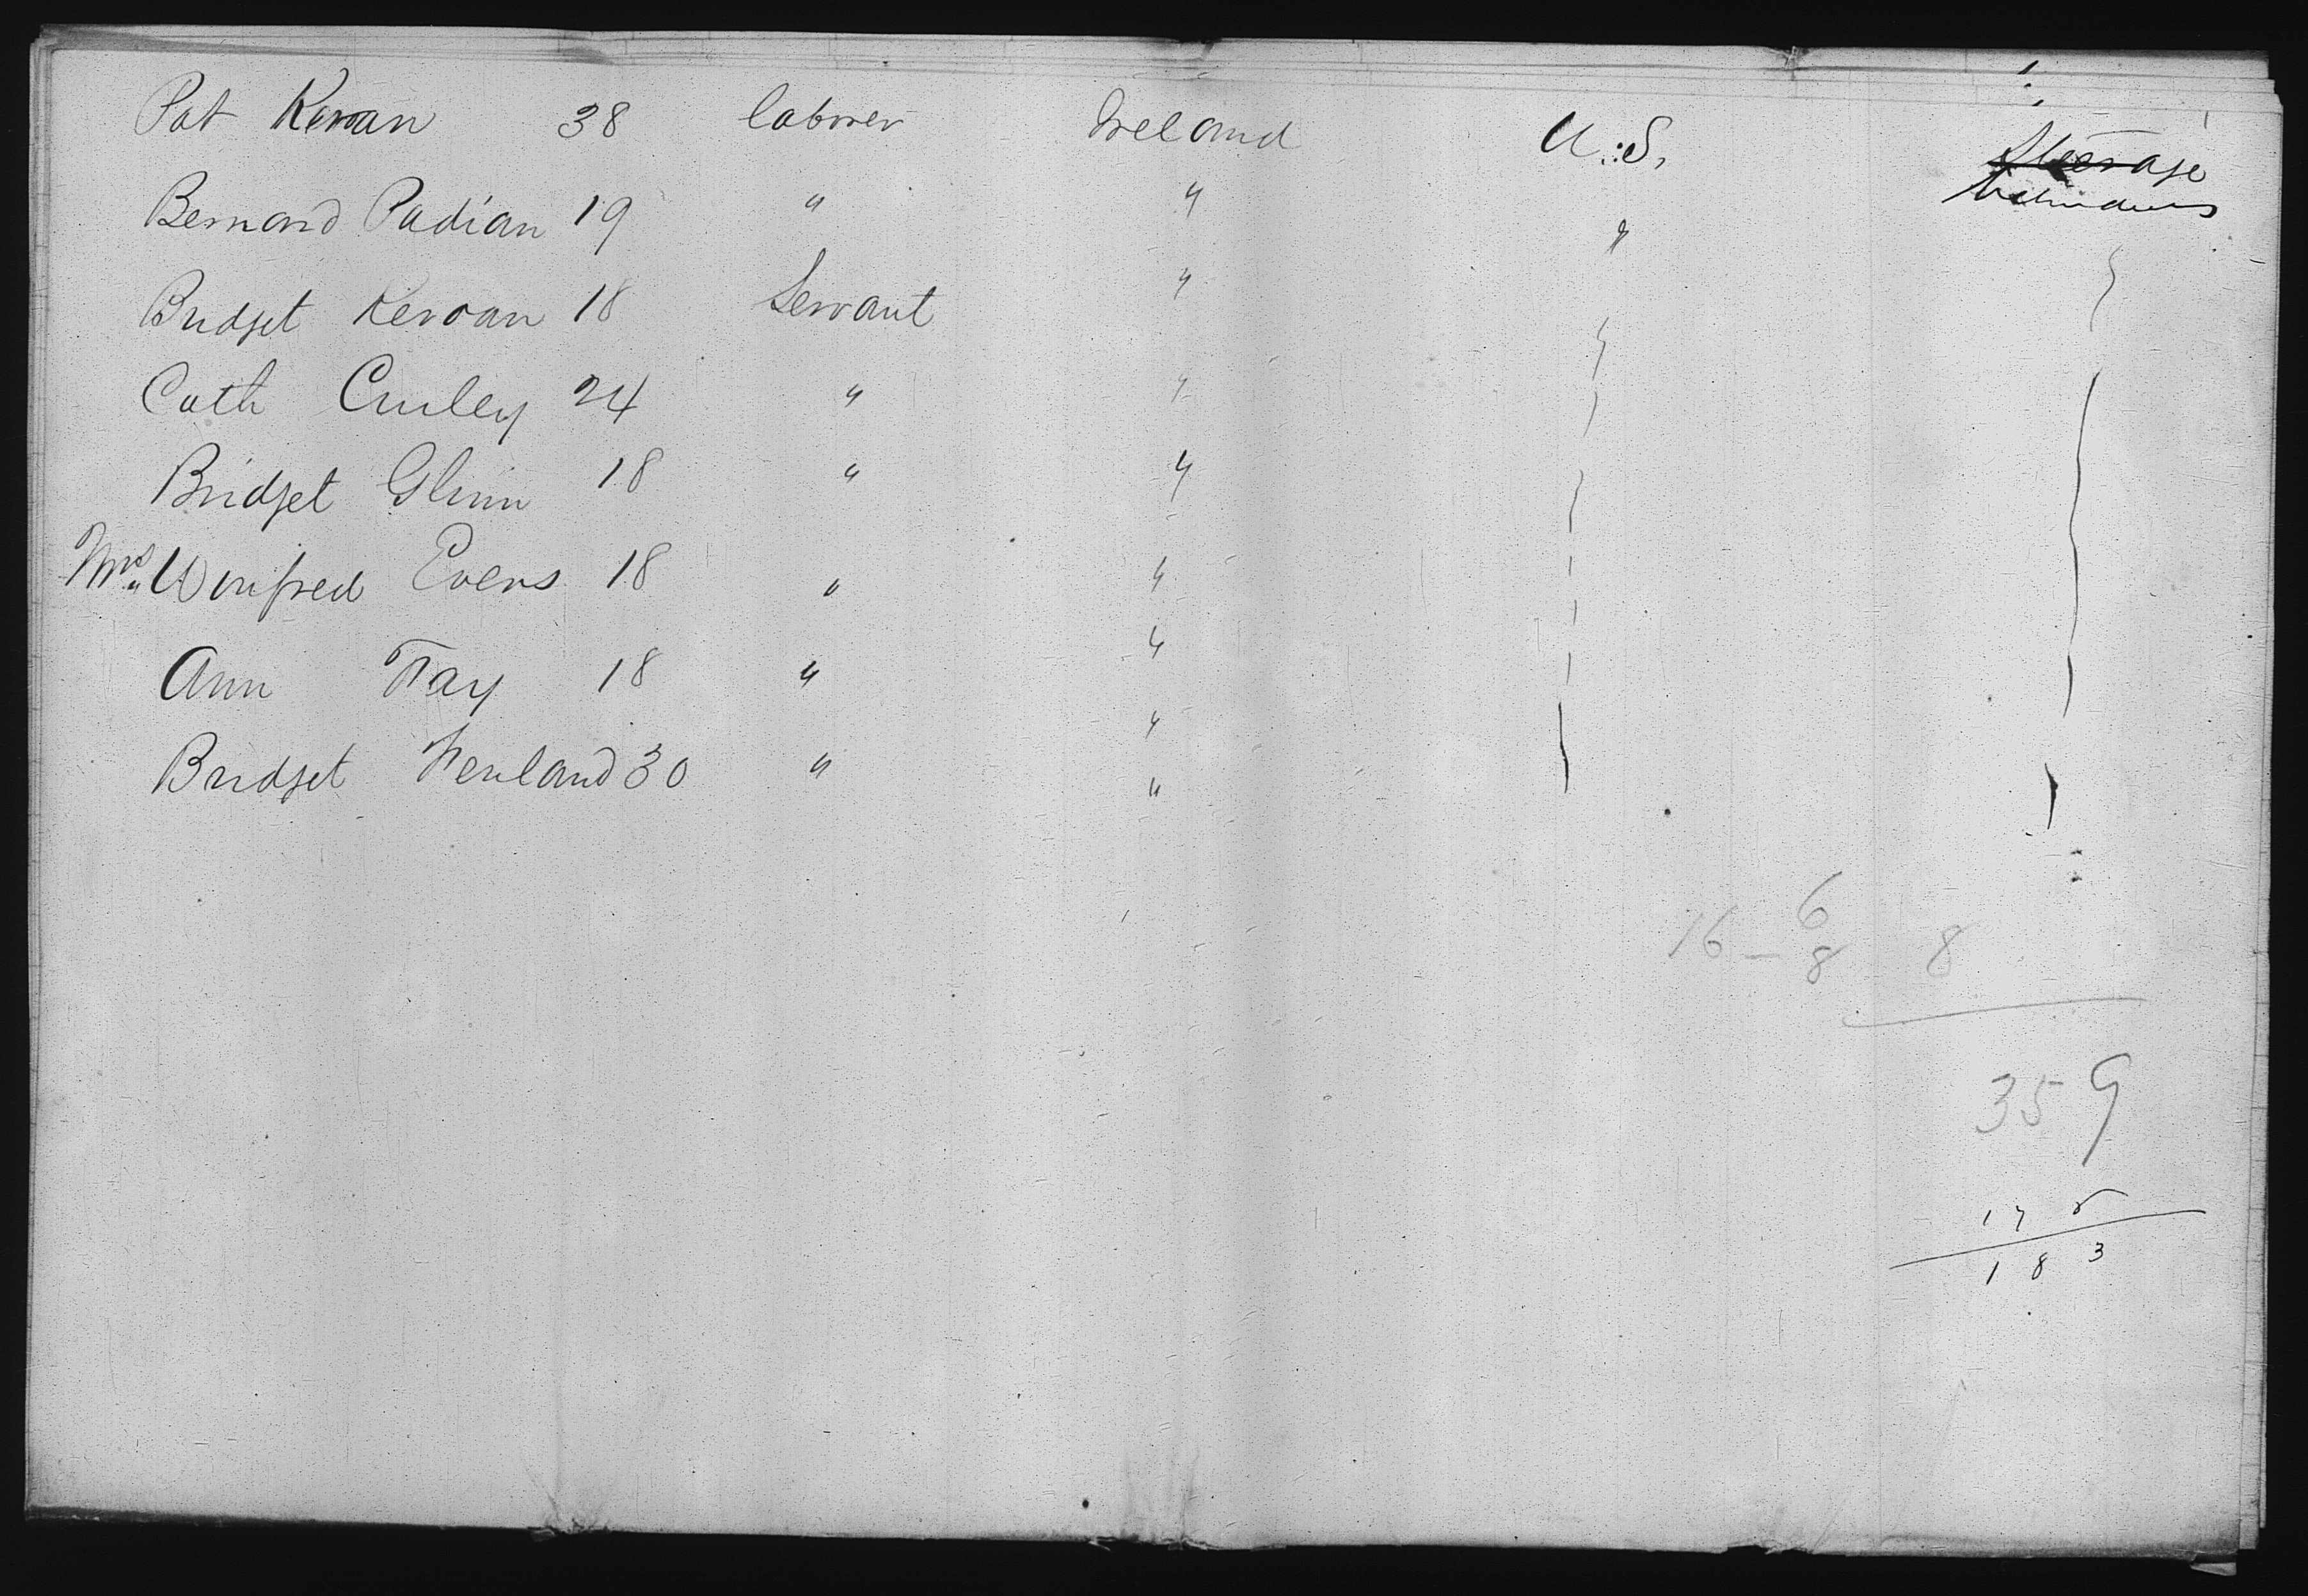 Pat Kervan 38 laborer Ireland U.S. Steerage
Bernard Padian 19 " " "
Bridget Kervan 18 Servant "
Cath Curley 24 " "
Bridget Glinn 18 " "
Mrs Winifred Evers 18 " "
"
Ann Fay 18 "
"
Bridget Henland 30 " "
6
16 - 8 8
359
176
183